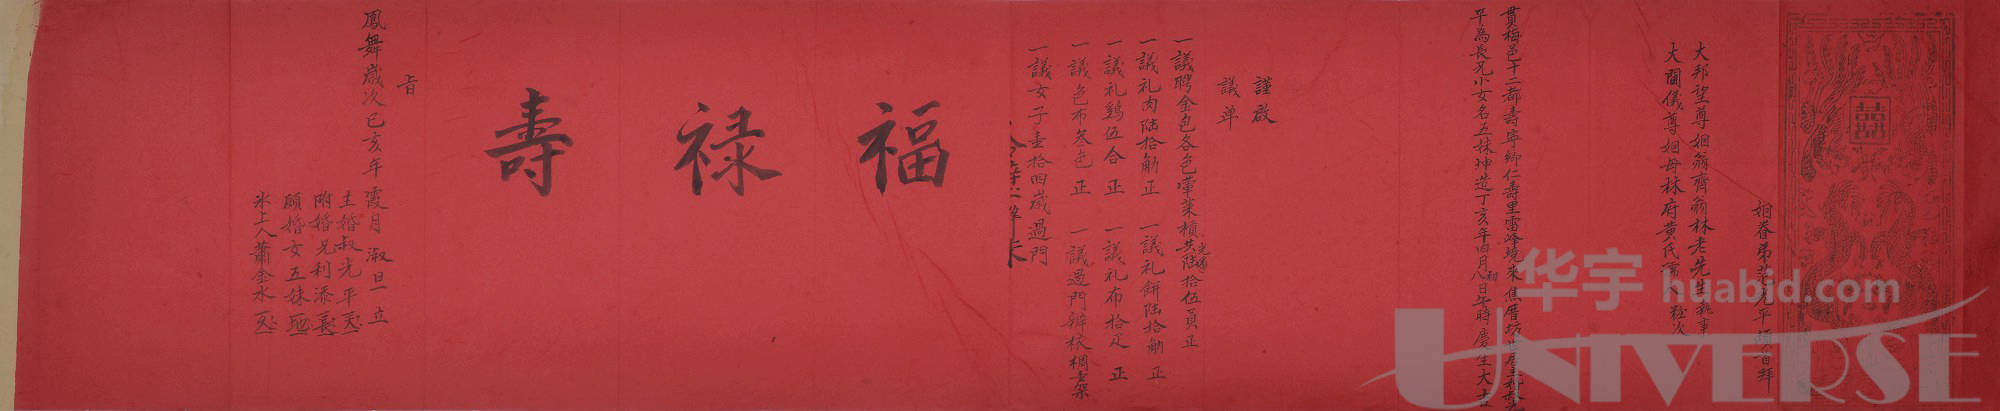 姻眷弟
大邦望尊姻翁齊翁林老先生執事
大閫儀尊姻母林府黃氏
貫梅邑十二都壽寧鄉仁壽里雷峰境來焦厝坊
平為長兄小女名五妹坤造丁亥年四月初八日午時慶生大吉
謹啟
議單
一議聘金色各色葷菜檟共光番陸拾伍員正
一議礼肉陆拾觔正 一議礼餅陆拾觔正
一議礼鷄伍合正 一議礼布拾疋正
一議色布叁色正 一議過門辦粮櫉壹架
一議女子壹拾四歲過門
福
禄
壽
旨
鳳舞歲次己亥年霞月淑旦立
主婚叔光平
附婚兄利添
願婚女五妹
氷上人蕭金水
华宇 huabid.com
UNIVERSE